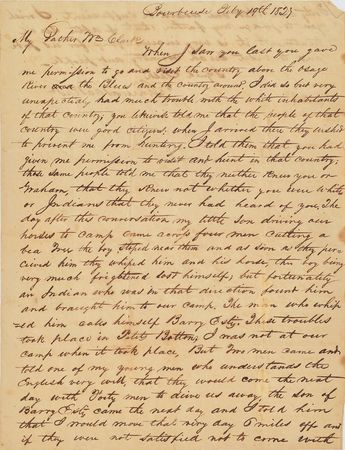 Feby 19th 1829
My Father Wm Clark
When I saw you last you gave
me permission to go and visit the country above the Osage
River and the Blues and the country around, I did so but very
unexpectedly had much trouble with the white inhabitants
of that country; you likewise told me that the people of that
country were good citizens, when I arrived there they wished
to prevent me from hunting. I told them that you had
given me permission to visit and hunt in that country;
these same people told me that they neither knew you or
Graham, that they knew not whether you were White
or Indians that they never had heard of you, The
day after this conversation my little son driving our
horses to camp came across four men cutting a
bea tree the boy stoped near them and as soon as they per=
ceived him they whiped him and his horse the boy being
very much frightened lost himself; but fortunately
an Indian who was in that direction found him
and braught him to our camp. The man who whip
ed him calls himself Barry Esty, These troubles
took place in Petit Bottom, I was not at our
camp when it took place, But two men came and
told one of my young men who understands the
English very well that they would come the next
day with forty men to drive us away, the son of
Barry Esty came the next day and I told him
that I would move that very day 6 miles off and
if they were not satisfied not to come with